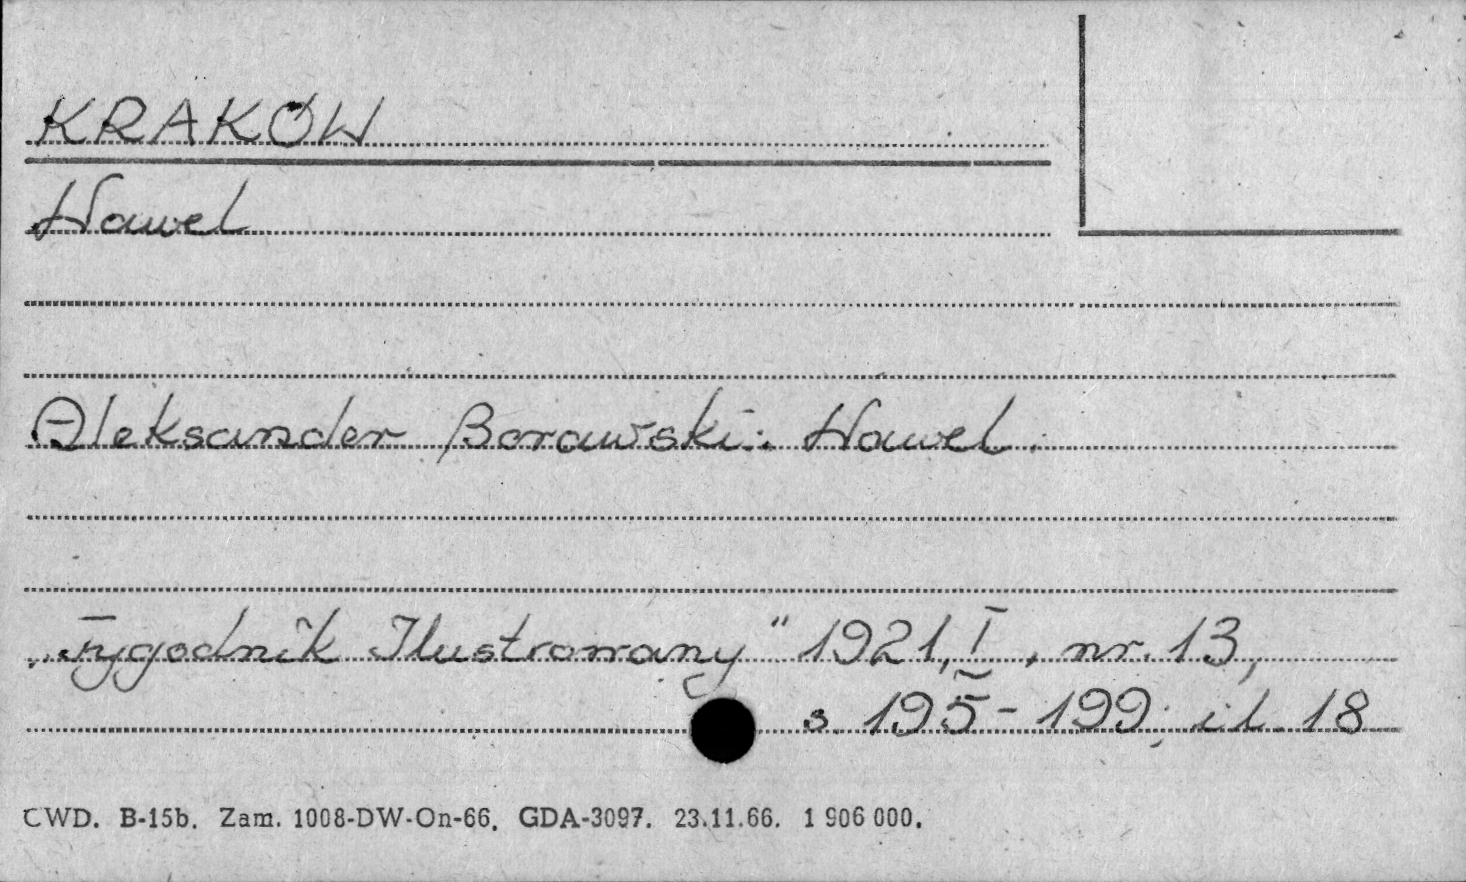 KRAKÓW
Wawel
Aleksander Borawski: Wawel.
„Tygodnik Ilustrowany" 1921, I, nr. 13,
s. 195-199; il. 18
CWD. B-15b. Zam. 1008-DW-On-66. GDA-3097. 23.11.66. 1 906 000.